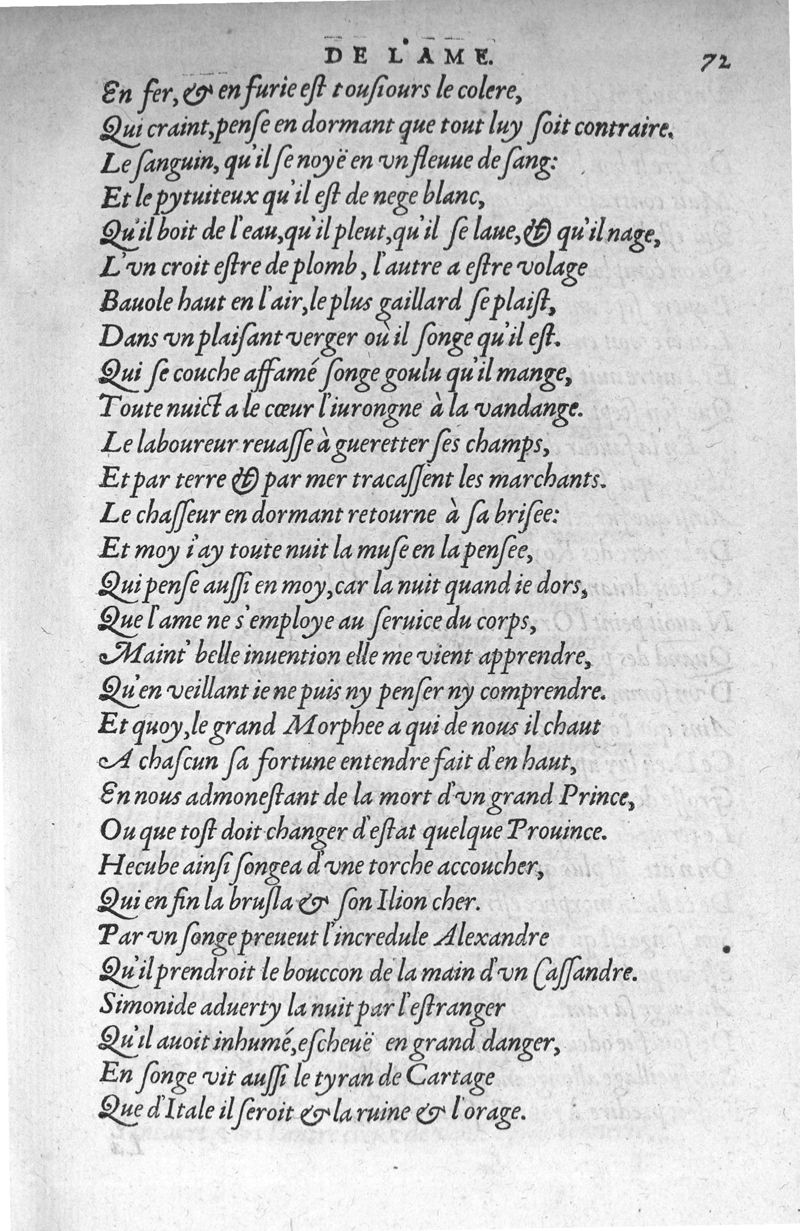 DE L'AME. 72
En fer, & en furie est tousiours le colere,
Qui craint, pense en dormant que tout luy soit contraire.
Le sanguin, qu'il se noyë en vn fleuue de sang:
Et le pytuiteux qu'il est de nege blanc,
Qu'il boit de l'eau, qu'il pleut, qu'il se laue, & qu'il nage,
L'vn croit estre de plomb, l'autre a estre volage
Bauole haut en l'air, le plus gaillard se plaist,
Dans vn plaisant verger où il songe qu'il est.
Qui se couche affamé songe goulu qu'il mange,
Toute nuict a le cœur l'iurongne à la vandange.
Le laboureur reuasse à gueretter ses champs,
Et par terre & par mer tracassent les marchants.
Le chasseur en dormant retourne à sa brisee:
Et moy i'ay toute nuit la muse en la pensee,
Qui pense aussi en moy, car la nuit quand ie dors,
Que l'ame ne s'employe au seruice du corps,
Maint' belle inuention elle me vient apprendre,
Qu'en veillant ie ne puis ny penser ny comprendre.
Et quoy, le grand Morphee a qui de nous il chaut
A chascun sa fortune entendre fait d'en haut,
En nous admonestant de la mort d'vn grand Prince,
Ou que tost doit changer d'estat quelque Prouince.
Hecube ainsi songea d'vne torche accoucher,
Qui en fin la brusla & son Ilion cher.
Par vn songe preueut l'incredule Alexandre
Qu'il prendroit le bouccon de la main d'vn Cassandre.
Simonide aduerty la nuit par l'estranger
Qu'il auoit inhumé, escheuë en grand danger,
En songe vit aussi le tyran de Cartage
Que d'Itale il seroit & la ruine & l'orage.